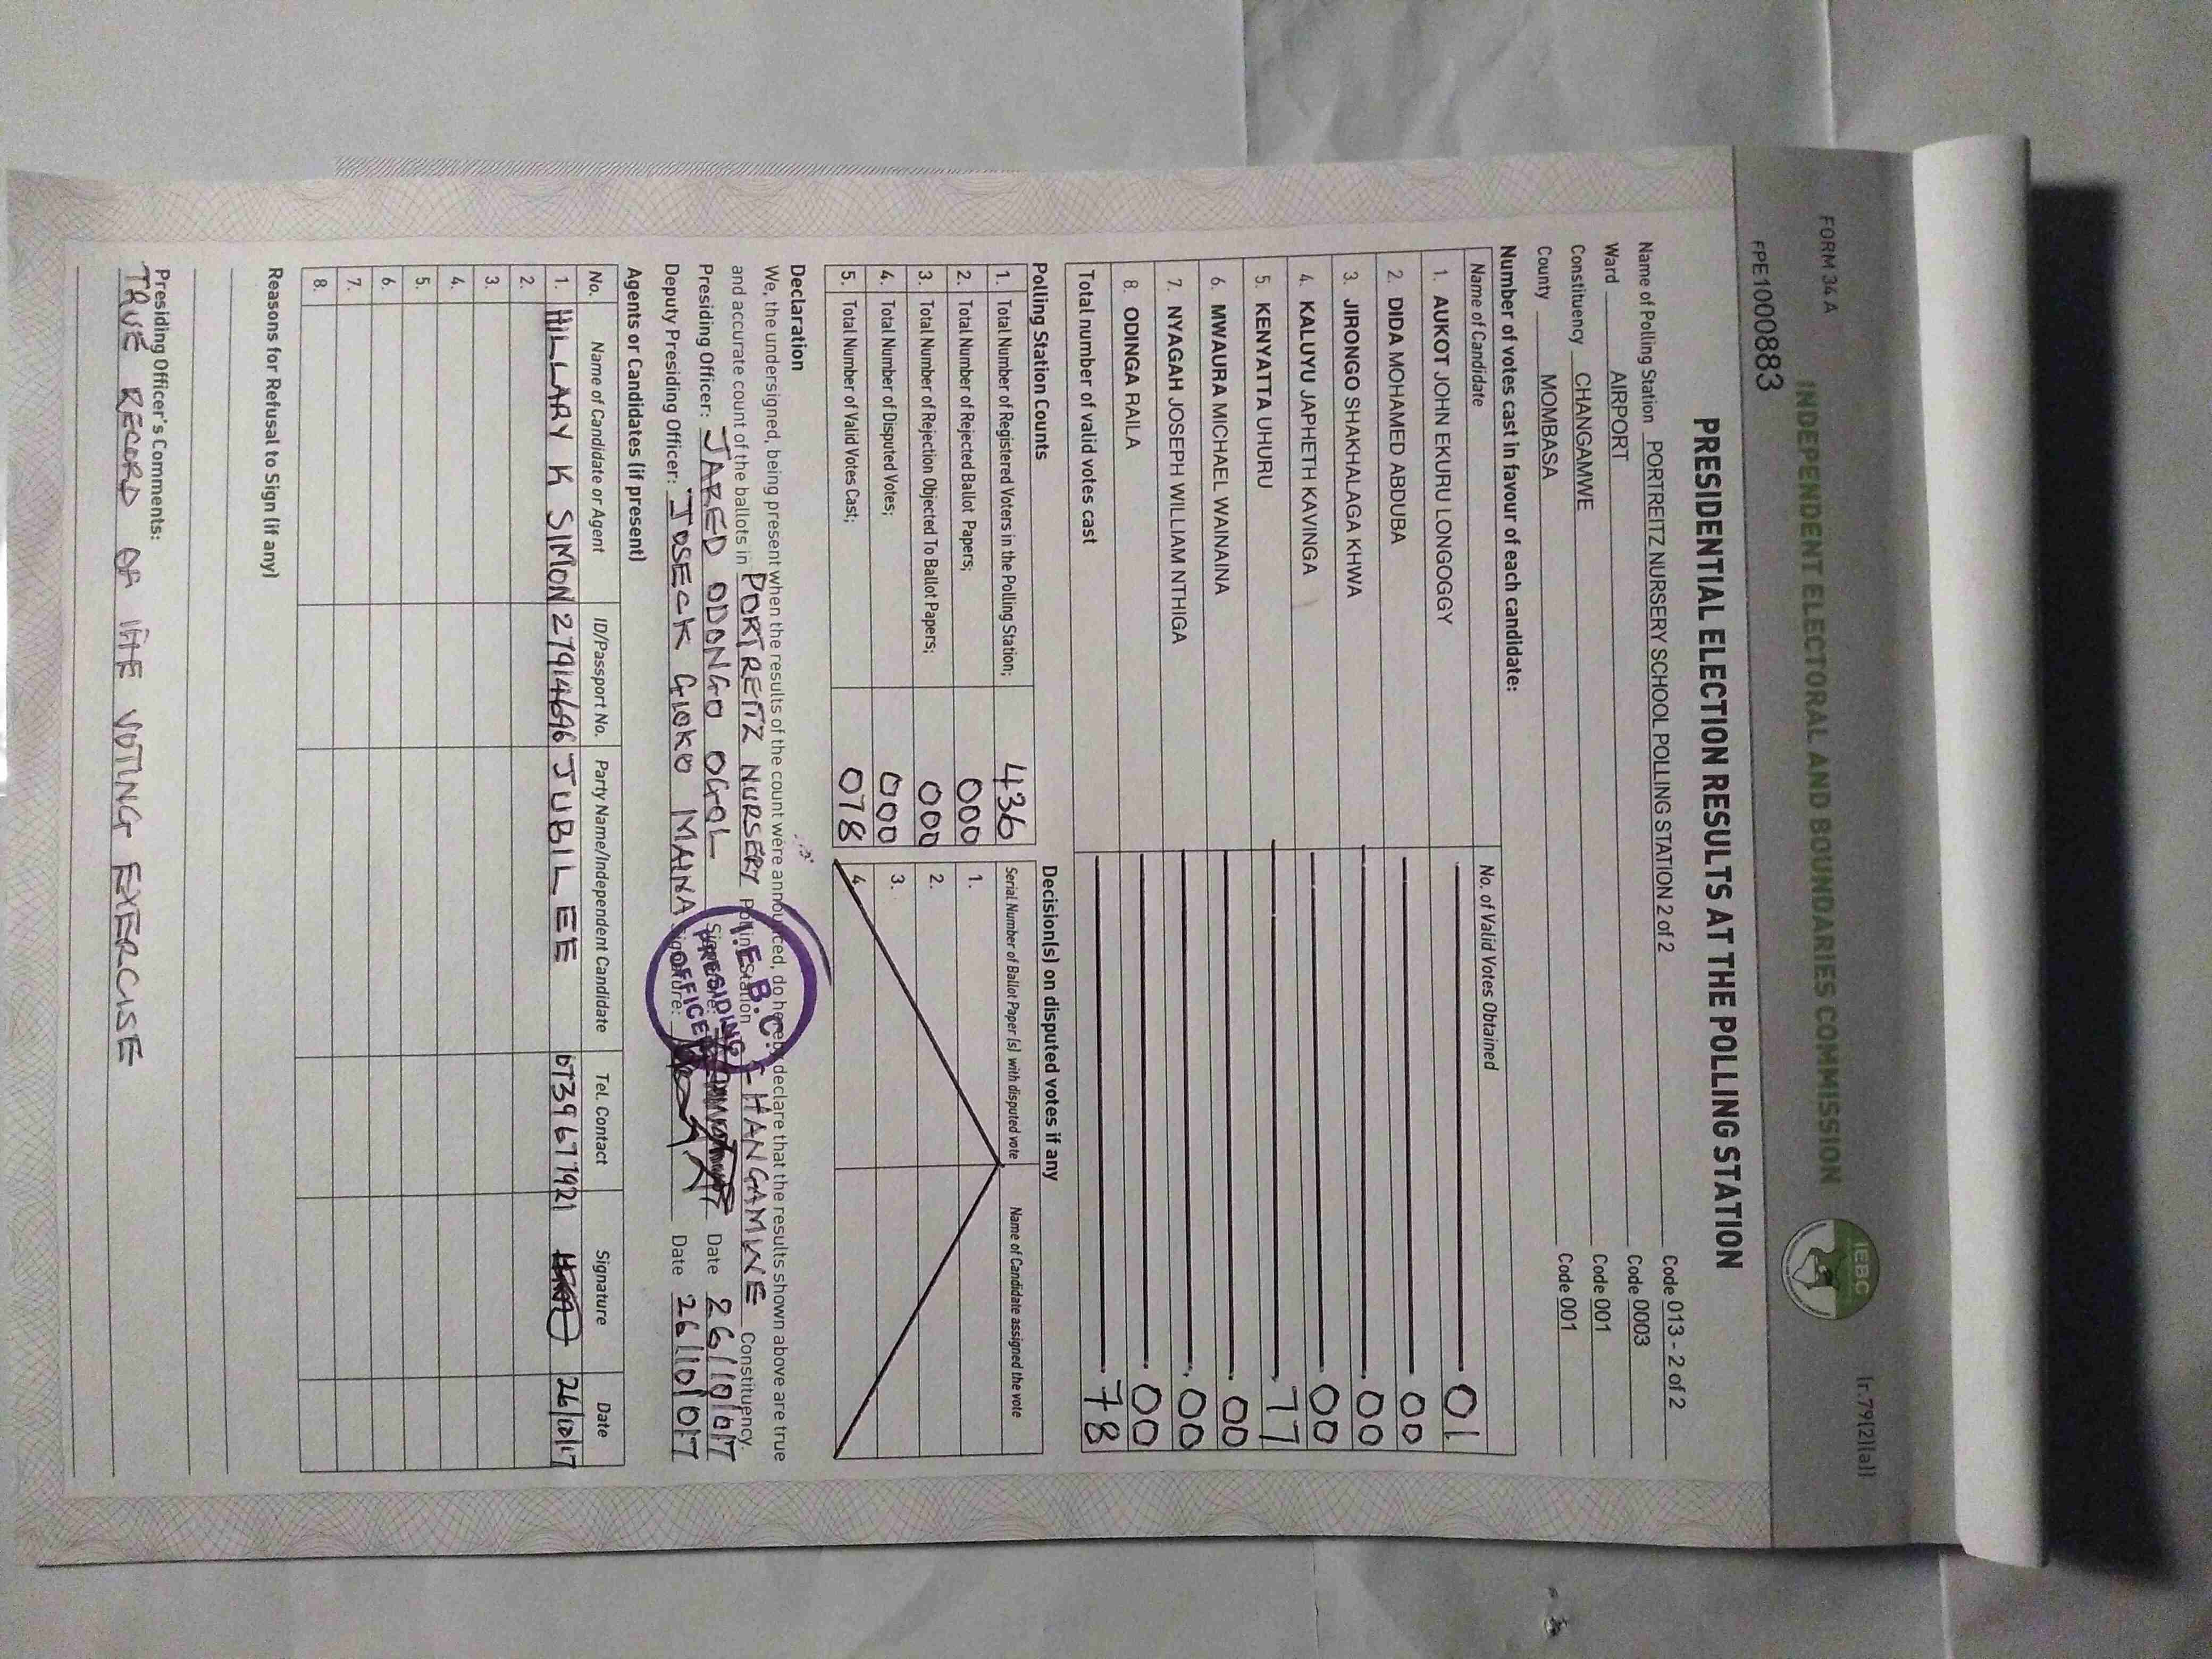 FORM 34 A
[r.79(2)(a)]
INDEPENDENT ELECTORAL AND BOUNDARIES COMMISSION
IEBC
FPE1000883
PRESIDENTIAL ELECTION RESULTS AT THE POLLING STATION
Name of Polling Station PORTREITZ NURSERY SCHOOL POLLING STATION 2 of 2 Code 013 - 2 of 2
Ward AIRPORT Code 0003
Constituency CHANGAMWE Code 001
County MOMBASA Code 001
Number of votes cast in favour of each candidate:
Name of Candidate No. of Valid Votes Obtained
1. AUKOT JOHN EKURU LONGOGGY 01
2. DIDA MOHAMED ABDUBA 00
3. JIRONGO SHAKHALAGA KHWA 00
4. KALUYU JAPHETH KAVINGA 00
5. KENYATTA UHURU 77
6. MWAURA MICHAEL WAINAINA 00
7. NYAGAH JOSEPH WILLIAM NTHIGA 00
8. ODINGA RAILA 00
Total number of valid votes cast 78
Polling Station Counts
1. Total Number of Registered Voters in the Polling Station; 436
2. Total Number of Rejected Ballot Papers; 000
3. Total Number of Rejection Objected To Ballot Papers; 000
4. Total Number of Disputed Votes; 000
5. Total Number of Valid Votes Cast; 078
Decision(s) on disputed votes if any
Serial Number of Ballot Paper (s) with disputed vote Name of Candidate assigned the vote
1.
2.
3.
4.
Declaration
We, the undersigned, being present when the results of the count were announced, do hereby declare that the results shown above are true
and accurate count of the ballots in PORTREITZ NURSERY Polling Station CHANGAMWE Constituency.
Presiding Officer: JARED ODONGO OGOL Signature: Date 26/10/017
Deputy Presiding Officer: JOSECK GIOKO MAINA Signature: Date 26/10/017
I.E.B.C.
PRESIDING
OFFICER
Agents or Candidates (if present)
No. Name of Candidate or Agent ID/Passport No. Party Name/Independent Candidate Tel. Contact Signature Date
1. HILLARY K SIMON 27914696 JUBILEE 0739677921 26/10/17
2.
3.
4.
5.
6.
7.
8.
Reasons for Refusal to Sign (if any)
Presiding Officer's Comments:
TRUE RECORD OF THE VOTING EXERCISE